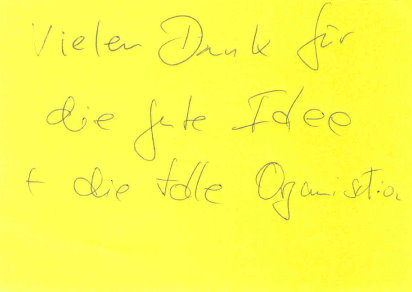 Vielen Dank für
die gute Idee
+ die tolle Organisation